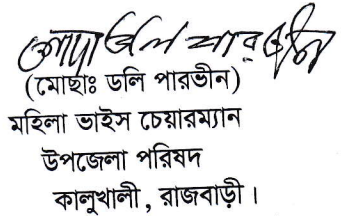 মোছাঃ ডলি পারভীন
(মোছাঃ ডলি পারভীন)
মহিলা ভাইস চেয়ারম্যান
উপজেলা পরিষদ
কালুখালী, রাজবাড়ী।